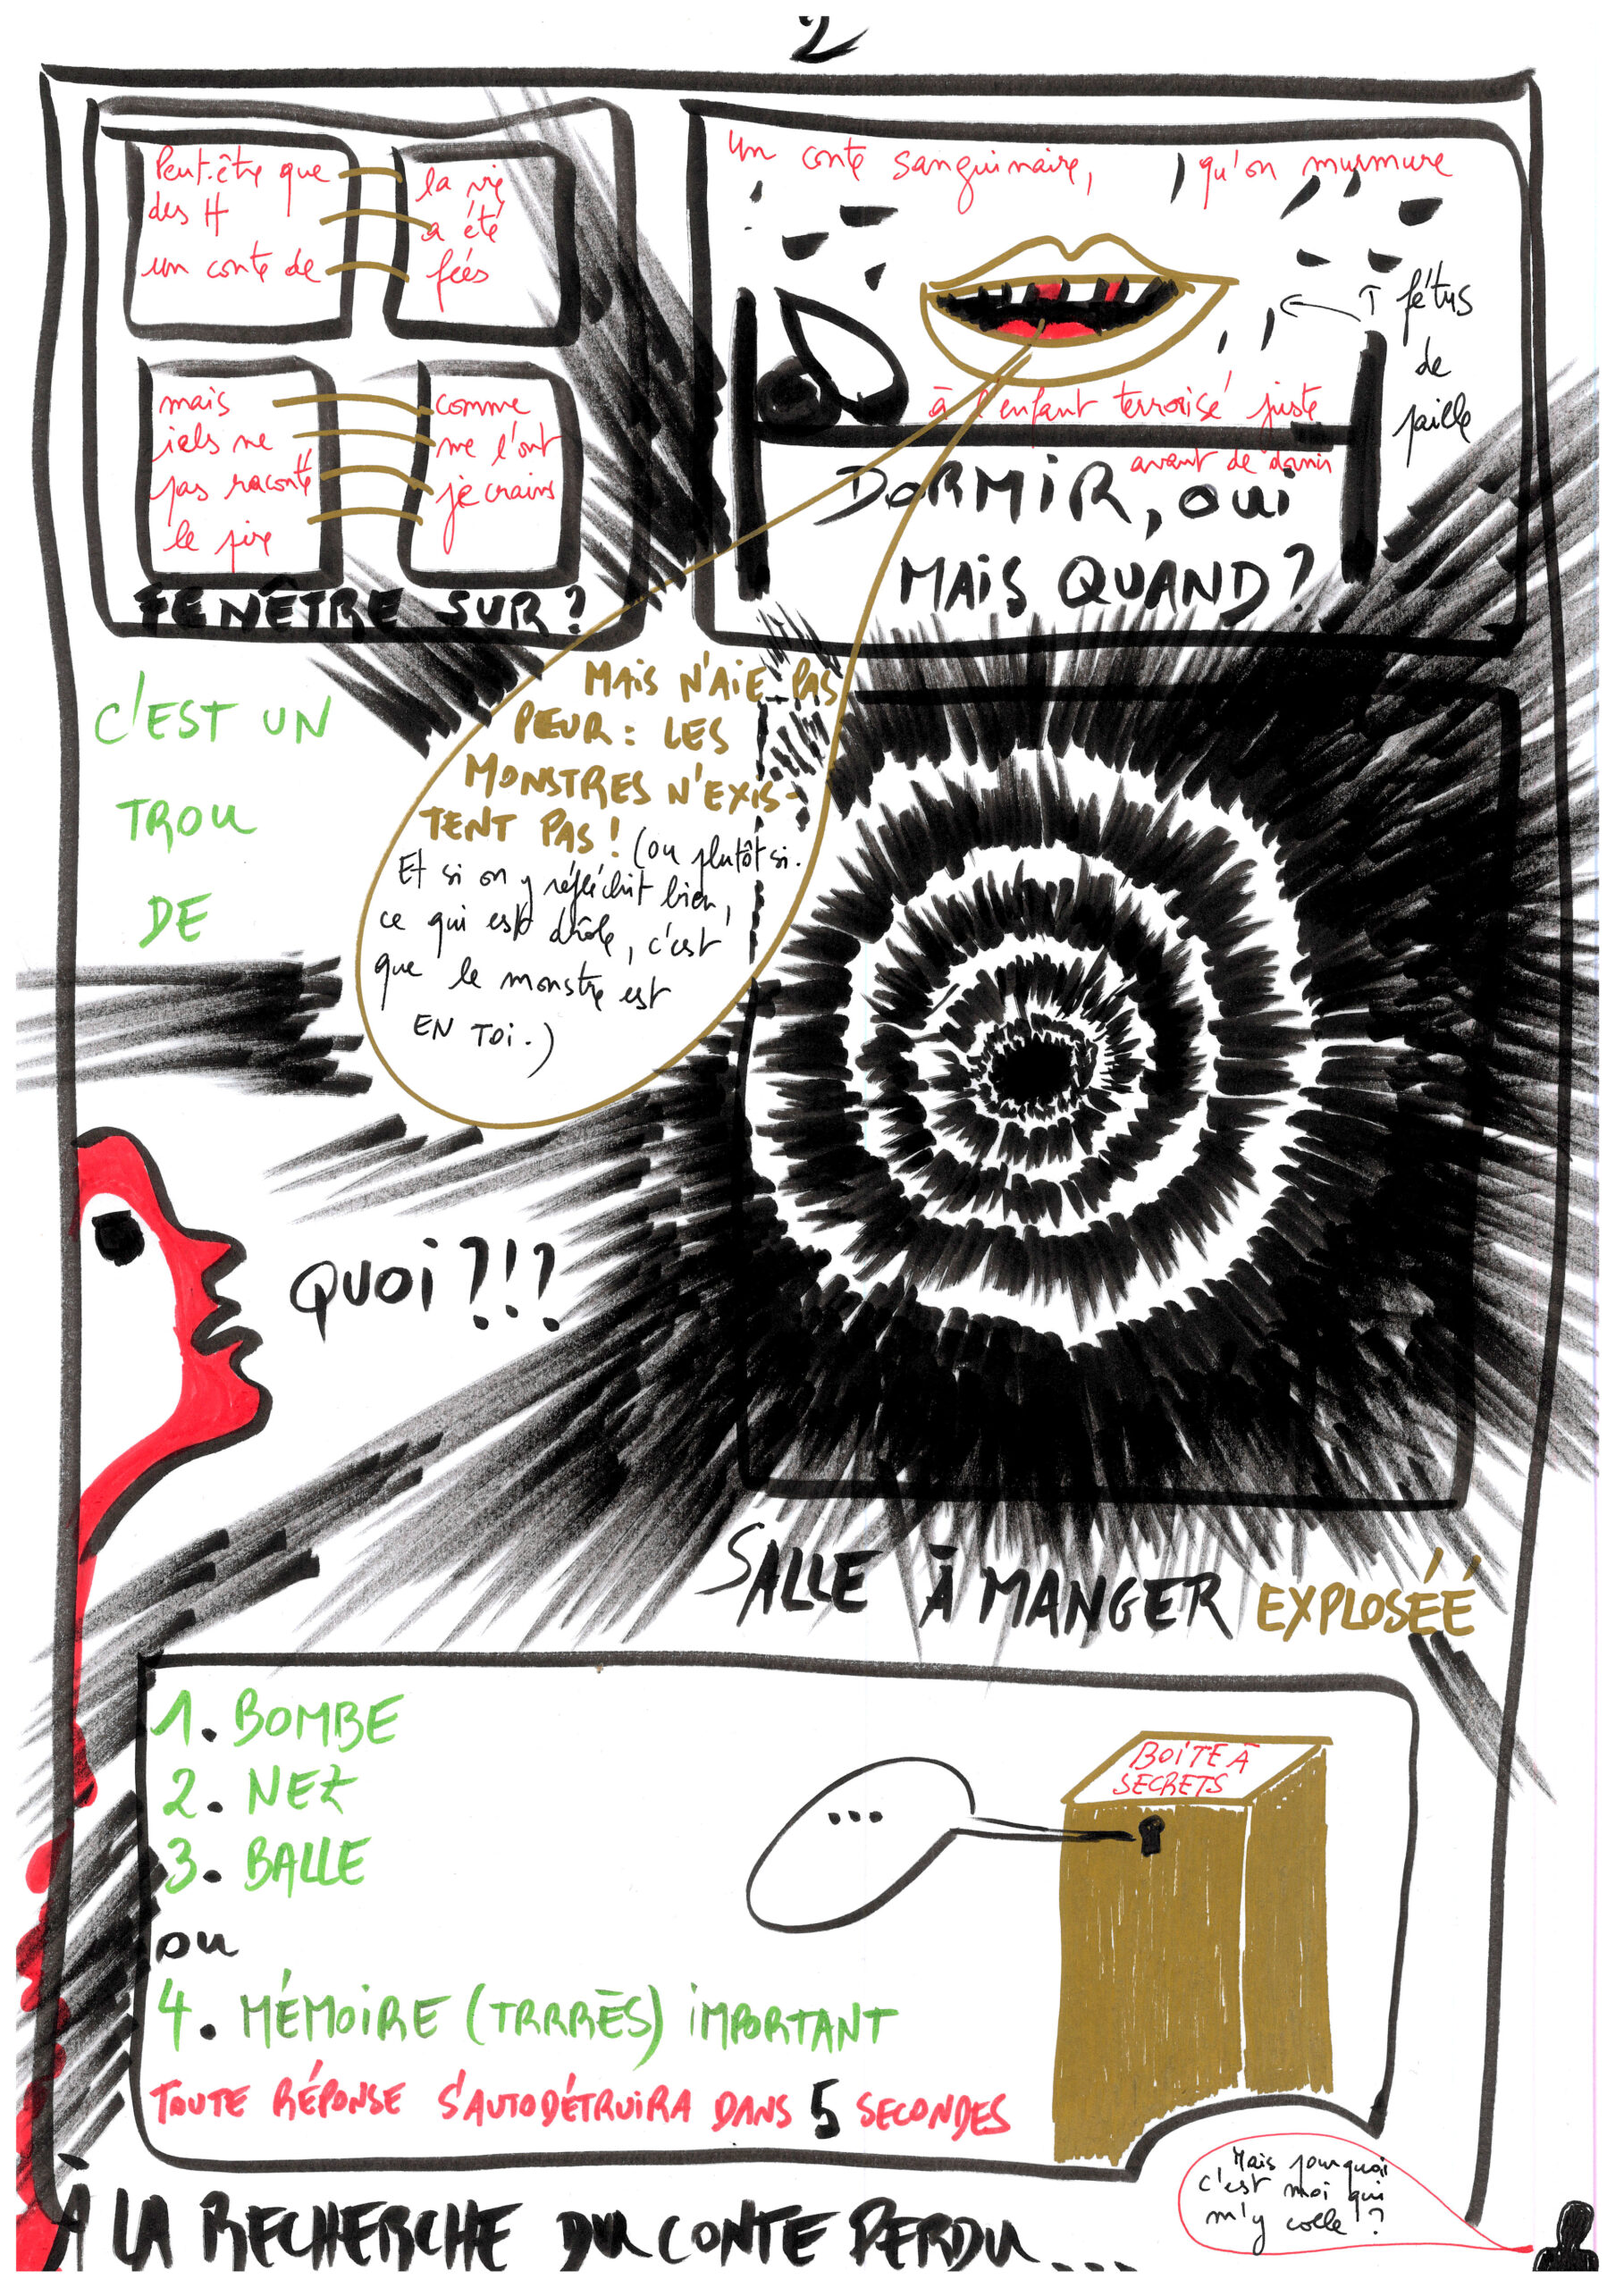 2
Peut-être que
des H
un conte de
la vie
a été
fées
mais
iels ne
pas raconté
le pire
comme
me l'ont
je crains
FENÊTRE SUR ?
un conte sanguinaire, qu'on murmure
à l'enfant terrorisé juste
avant de dormir
fétus
de
paille
DORMIR, OUI
MAIS QUAND ?
MAIS N'AIE PAS
PEUR : LES
MONSTRES N'EXIS-
TENT PAS ! (ou plutôt si.
Et si on y réfléchit bien,
ce qui est drôle, c'est
que le monstre est
EN TOI.)
C'EST UN
TROU
DE
QUOI ?!?
SALLE À MANGER EXPLOSÉÉ
1. BOMBE
2. NEZ
3. BALLE
ou
4. MÉMOIRE (TRRRÈS) IMPORTANT
TOUTE RÉPONSE S'AUTODÉTRUIRA DANS 5 SECONDES
...
BOITE À
SECRETS
À LA RECHERCHE DU CONTE PERDU...
Mais pourquoi
c'est moi qui
m'y colle ?